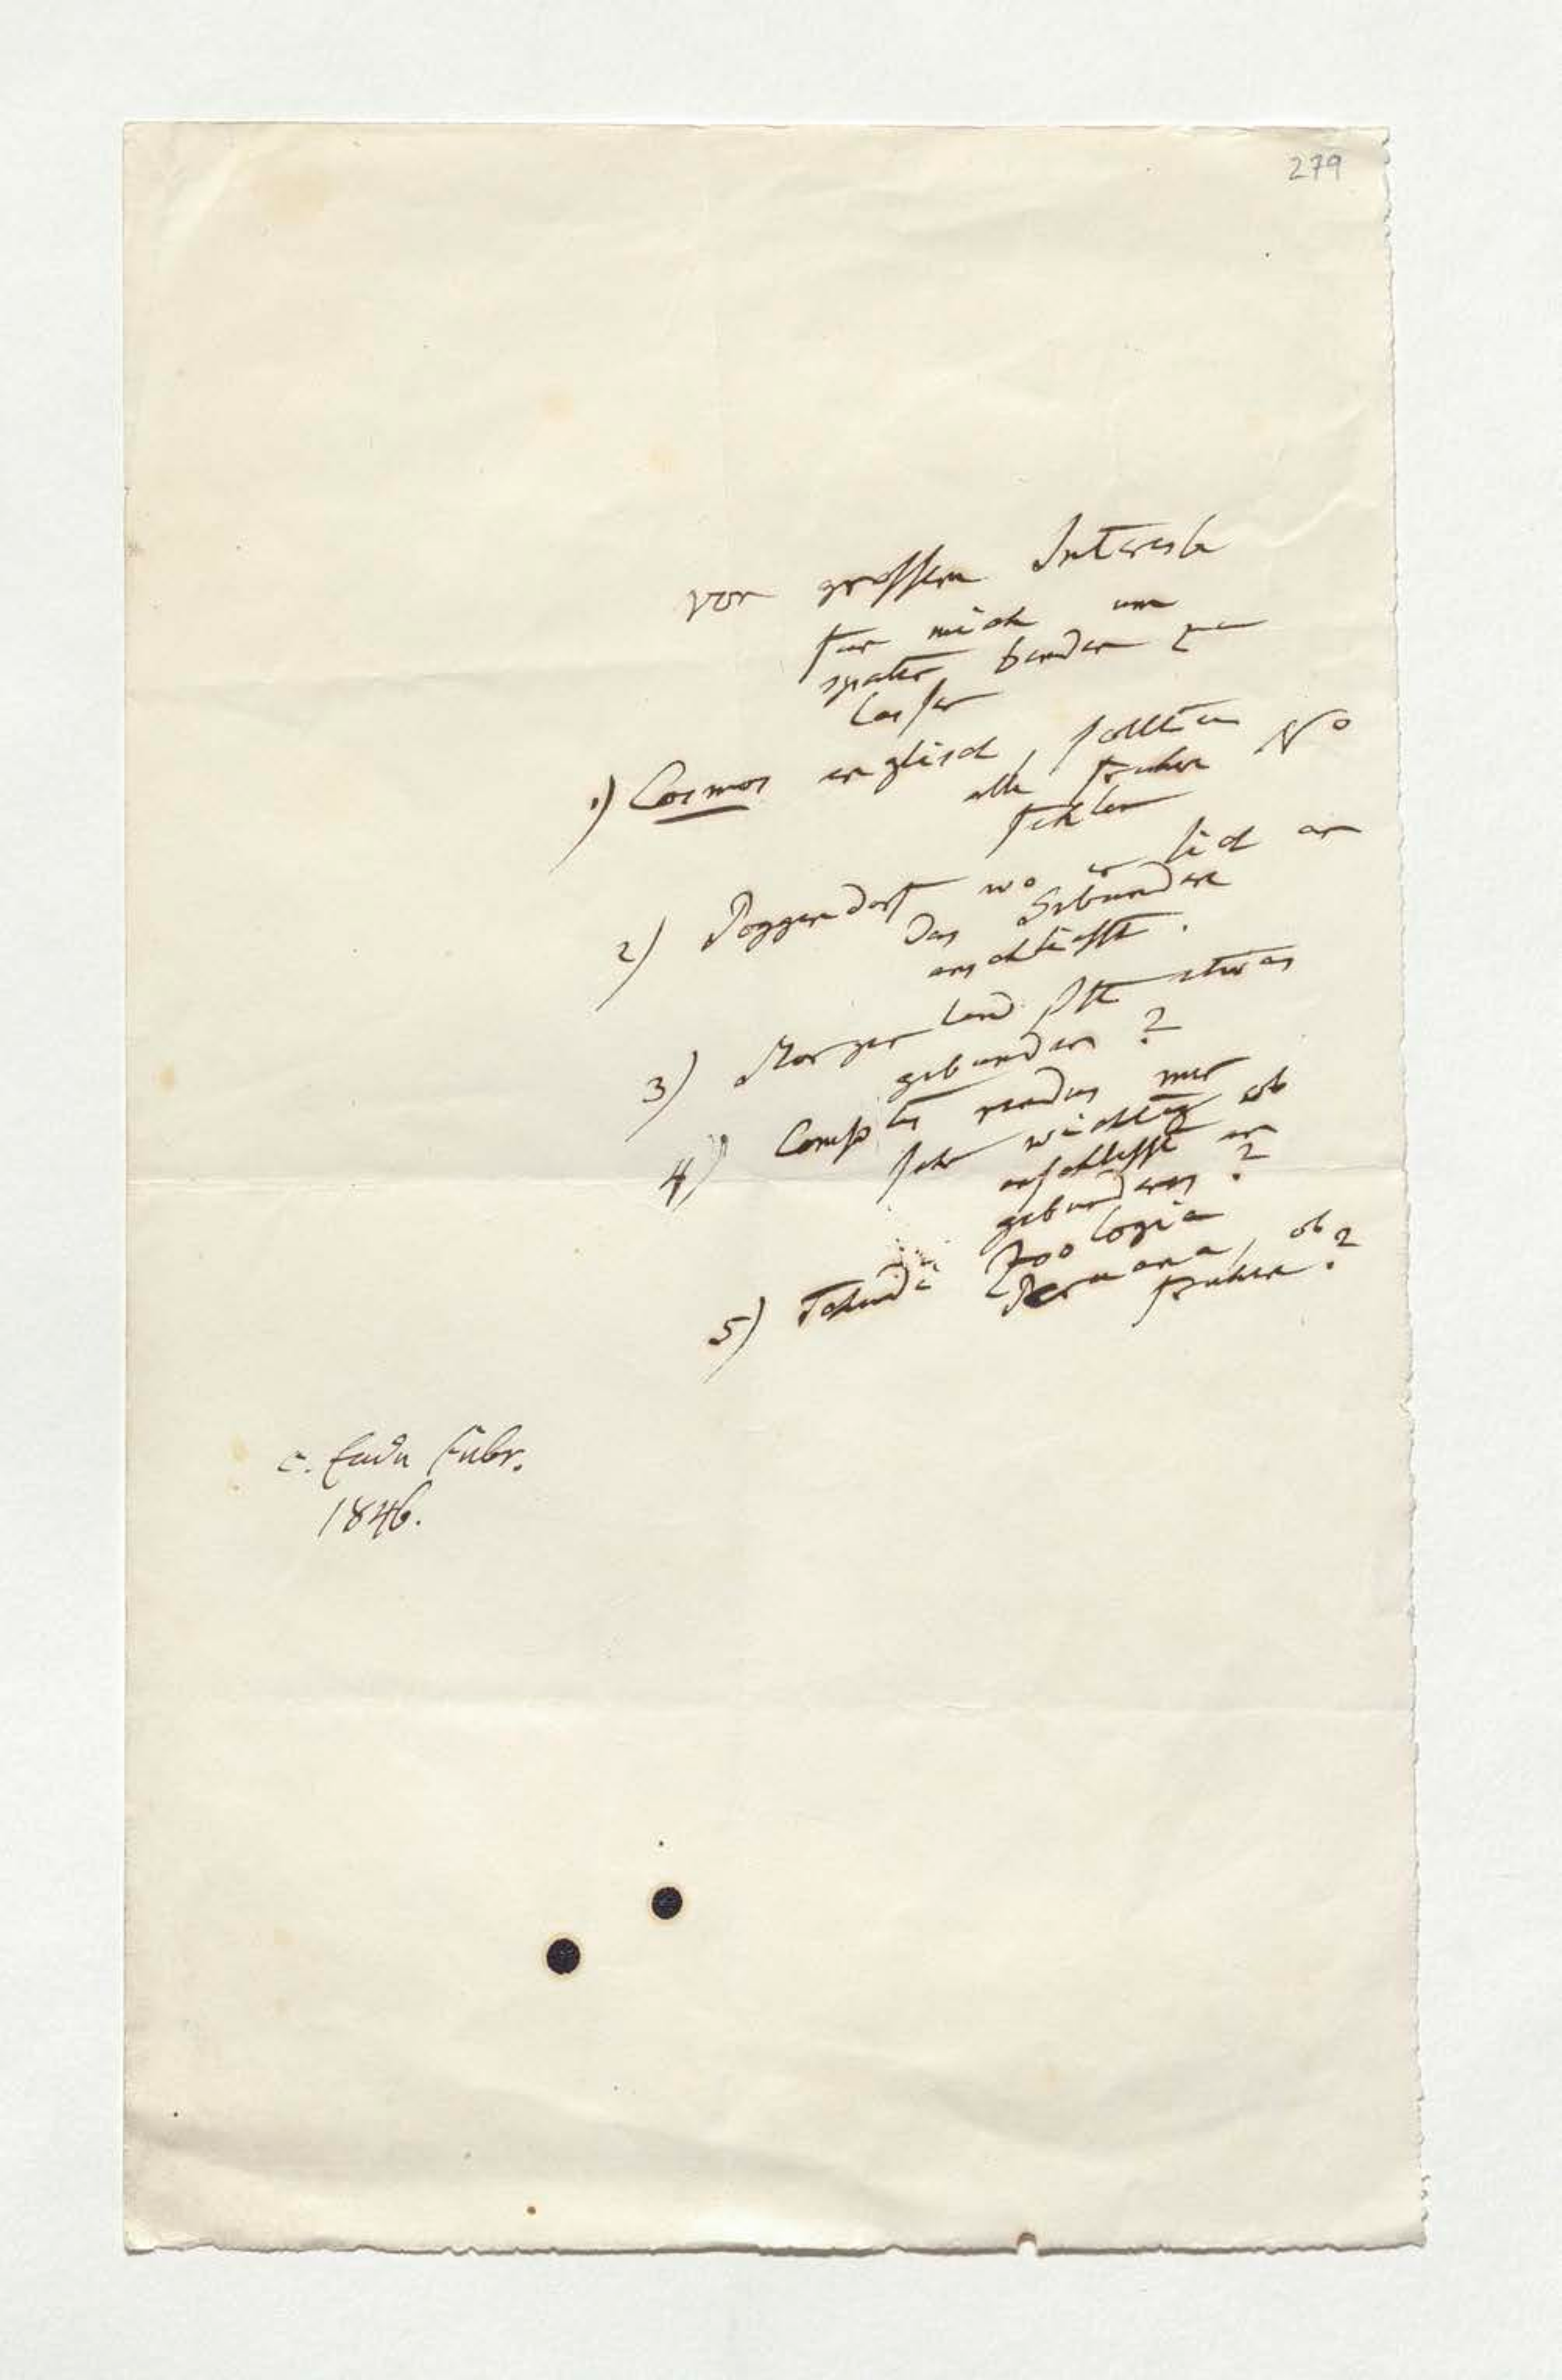 279
von grossem Interesse
fur mich um
spater binden zu
lassen
1) Cosmos englisch, sollten
alle fruhere No
fehlen
2) Poggendorf wo er sich an
das Gebundene
anschliesst.
3) Morgenland Ist etwas
gebunden?
4) Comptes rendus mir
sehr wichtig ob
anschliesst an
gebundenes?
5) Tchudi Zoologia
Peruana, ob
fruhere?
c. Ende Febr.
1846.